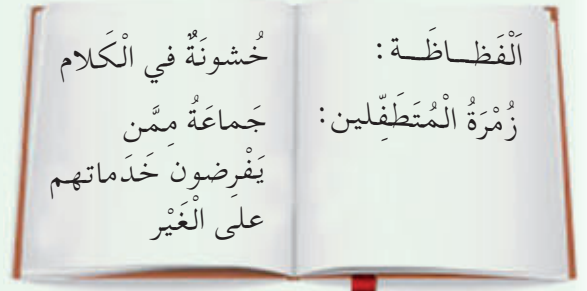 اَلْفَظـــاظَـــة : خُشونَةٌ في الْكَلام
زُمْرَةُ الْمُتَطَفِّلين: جَماعَةُ مِمَّن
يَفْرِضون خَدَماتهم
على الْغَيْر